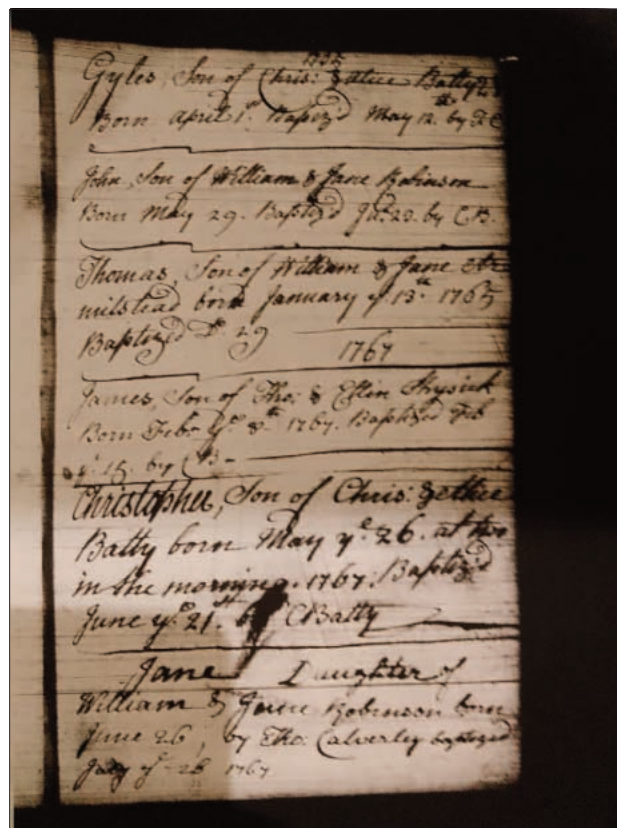 Gyles, Son of Chris: & Alice Batty
Born april 1st. Baptiz'd May 12th. by
John, Son of William & Jane Robinson
Born May 29. Baptiz'd 23. by CB.
Thomas, Son of William & Jane
milstead born January ye. 13th. 1765
Baptized Do. 29
1767
James, Son of Tho: &
Born Feb: ye. 8th. 1767. Baptized Feb
ye. 15. by CB-
Christopher, Son of Chris: &
Batty born May ye. 26. at two
in the morning. 1767: Baptiz'd
June ye. 21st. by CBatty
Jane Daughter of
William & Jane Robinson born
June 26, by Tho: Calverley baptized
July ye 26 1767